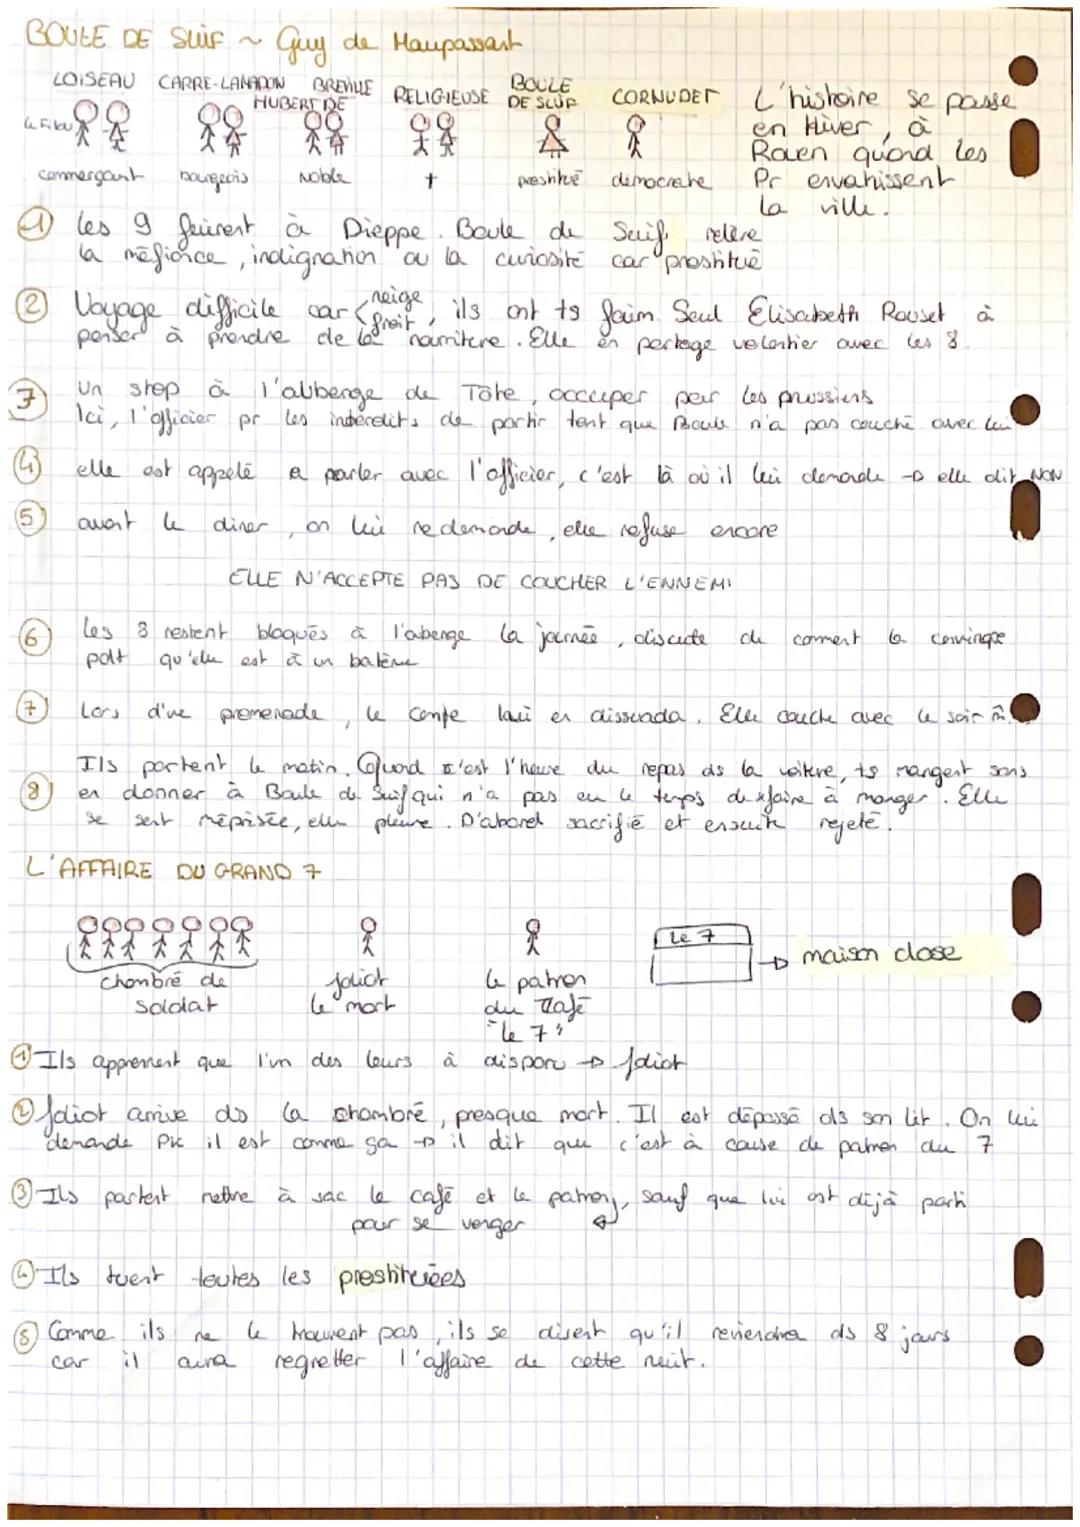 BOULE DE SUIF ~ Guy de Maupassant
LOISEAU CARRE-LAMADON HUBERT DE BREVILLE RELIGIEUSE BOULE DE SUIF CORNUDET
le Filou
commerçant bourgeois Noble + prostitué démocrate
L'histoire se passe
en Hiver, à
Rouen quand les
Pr envahissent
la ville.
① les 9 fuirent à Dieppe. Boule de Suif relève
la méfiance, indignation ou la curiosité car prostitué
② Voyage difficile car < neige froit, ils ont ts faim. Seul Elisabeth Rousset à
penser à prendre de la nourriture. Elle en partage volontier avec les 8.
③ Un stop à l'aubenge de Tôte, occuper par les prussiens
Ici, l'officier pr les interdits de partir tant que Boule n'a pas couché avec lui
④ elle est appelé a parler avec l'officier, c'est là où il lui demande → elle dit NON
⑤ avant le diner, on lui redemande, elle refuse encore
ELLE N'ACCEPTE PAS DE COUCHER L'ENNEMI
⑥ les 8 restent bloqués à l'abenge la journée, discute de comment la convinque
pdt qu'elle est à un batême
⑦ Lors d'une promenade, le comte lui en dissuada. Elle couche avec le soir m̂.
⑧ Ils partent le matin. Quand c'est l'heure du repas ds la voiture, ts mangent sans
en donner à Boule de Suif qui n'a pas eu le temps de faire à manger. Elle
se sent méprisée, elle pleure. D'abord sacrifié et ensuite rejeté.
L'AFFAIRE DU GRAND 7
chambré de
soldat
Joliot
le mort
le patron
du Café
"le 7"
Le 7
→ maison close
① Ils apprennent que l'un des leurs à disparu → Joliot
② Joliot arrive ds la chambré, presque mort. Il est dépassé ds son lit. On lui
demande pk il est comme ça → il dit que c'est à cause de patron du 7
③ Ils partent mettre à sac le café et le patron, sauf que lui est déjà parti
pour se venger
④ Ils tuent toutes les prostituées
⑤ Comme ils ne le trouvent pas, ils se disent qu'il reviendra ds 8 jours
car il aura regretter l'affaire de cette nuit.